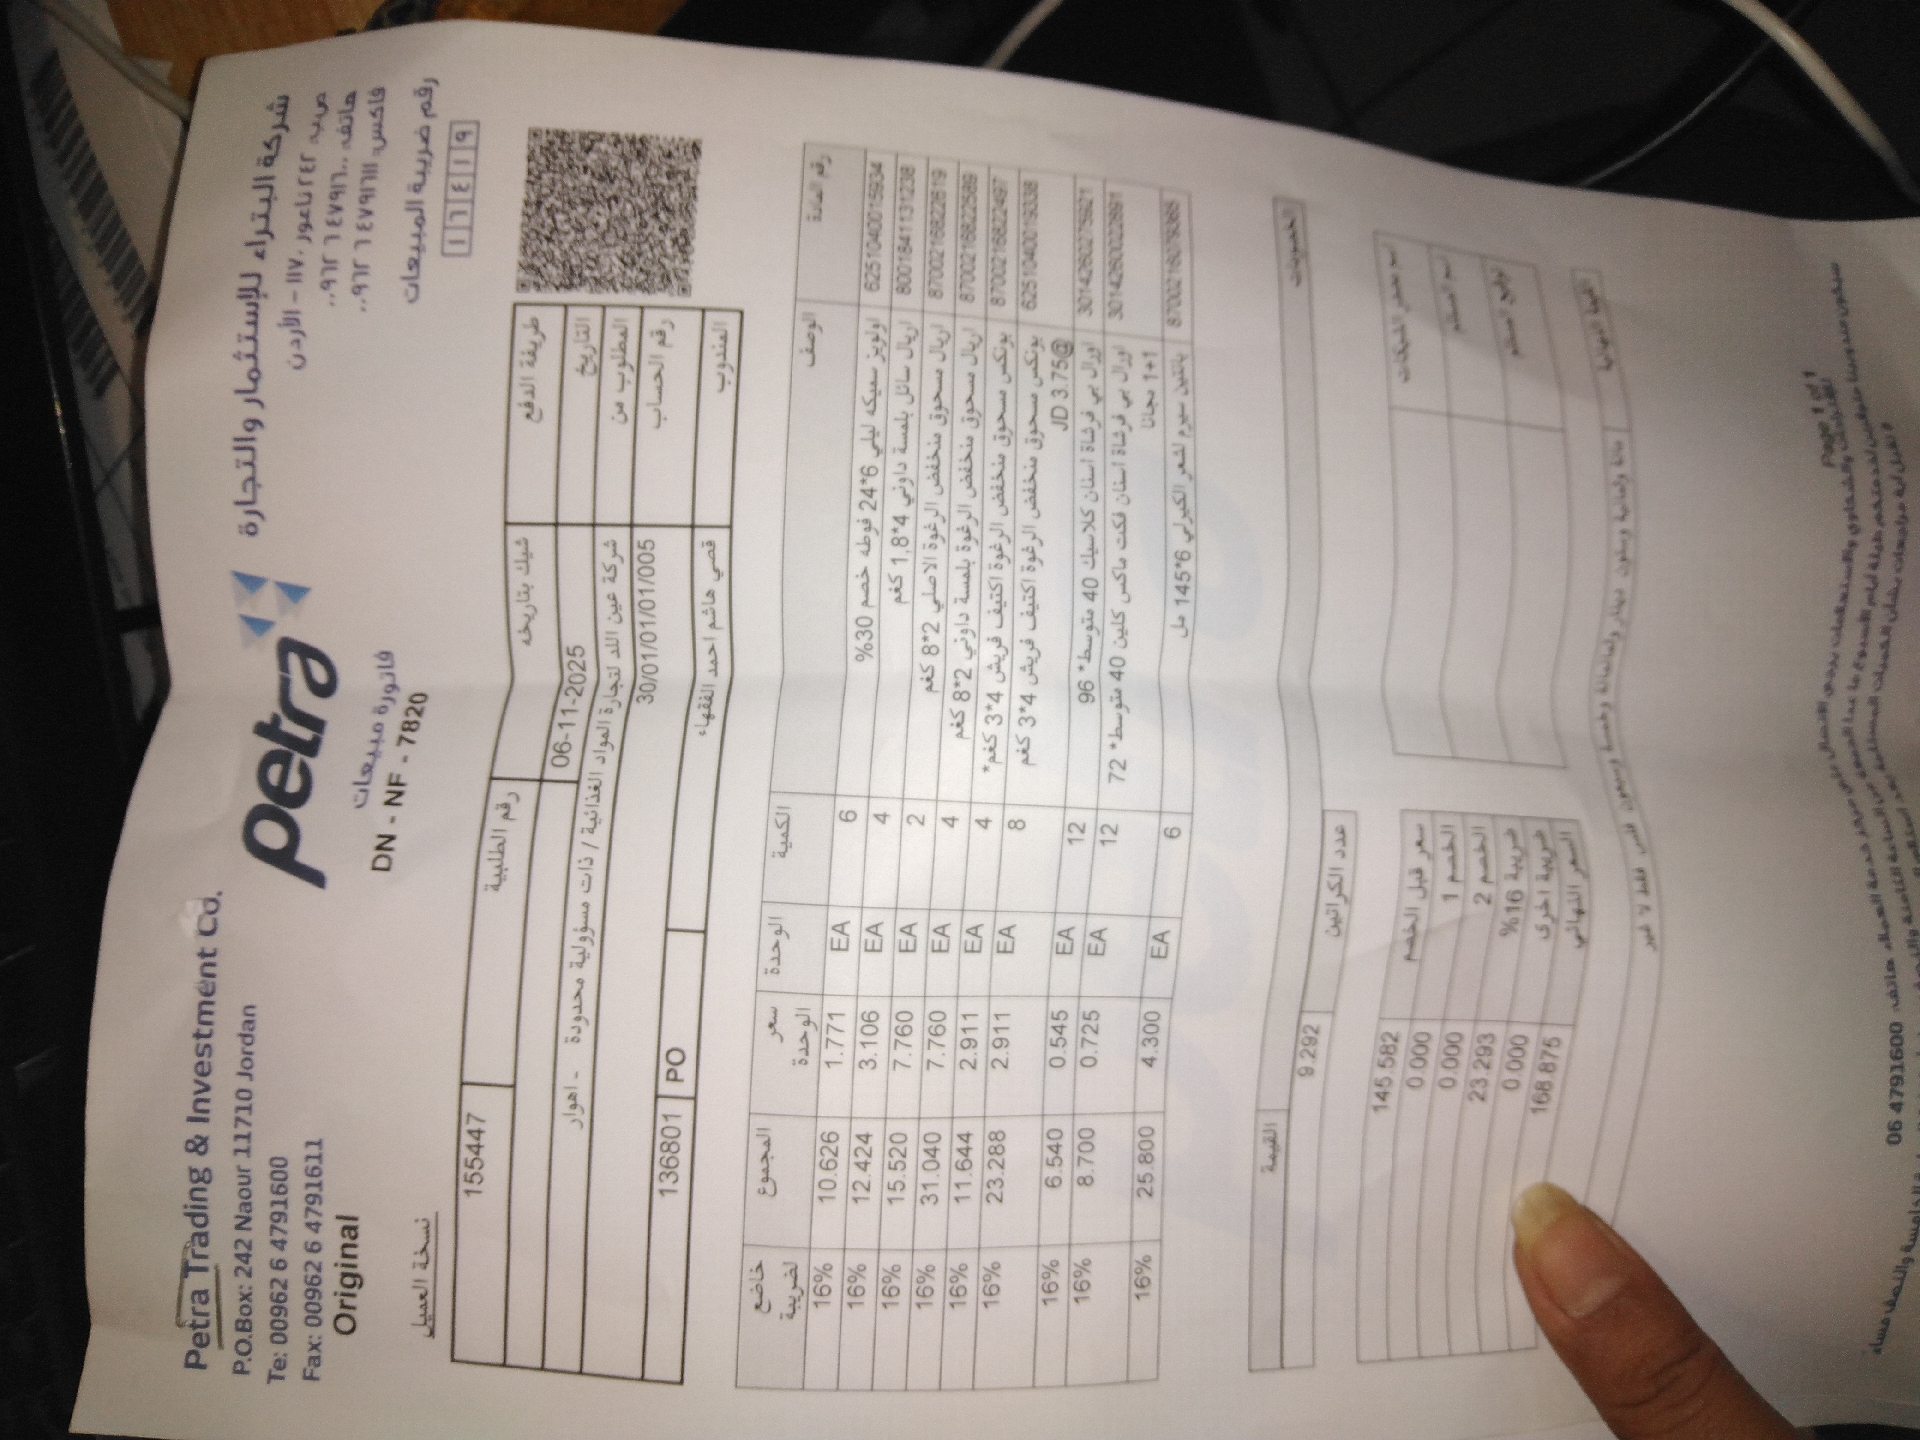 Petra Trading & Investment Co.
P.O.Box: 242 Naour 11710 Jordan
Te: 00962 6 4791600
Fax: 00962 6 4791611
Original
petra
شركة البتراء للإستثمار والتجارة
ص.ب. ٢٤٢ ناعور ١١٧١٠ - الأردن
هاتف: ٤٧٩١٦٠٠ ٦ ٠٠٩٦٢
فاكس: ٤٧٩١٦١١ ٦ ٠٠٩٦٢
رقم ضريبة المبيعات
١ ٦ ٤ ١ ٩
فاتورة مبيعات
DN - NF - 7820
نسخة العميل
طريقة الدفع شيك بتاريخه رقم الطلبية 155447
التاريخ 06-11-2025
المطلوب من شركة عين اللد لتجارة المواد الغذائية / ذات مسؤولية محدودة - اهوار
رقم الحساب 30/01/01/01/005
المندوب قصي هاشم احمد الفقهاء PO 136801
رقم المادة الوصف الكمية الوحدة سعر الوحدة المجموع خاضع لضريبة
6251040015934 اولويز سميكه ليلي 6*24 فوطه خصم 30% 6 EA 1.771 10.626 16%
8001841131238 اريال سائل بلمسة داوني 4*1,8 كغم 4 EA 3.106 12.424 16%
8700216822619 اريال مسحوق منخفض الرغوة الاصلي 2*8 كغم 2 EA 7.760 15.520 16%
8700216822589 اريال مسحوق منخفض الرغوة بلمسة داوني 2*8 كغم 4 EA 7.760 31.040 16%
8700216822497 بونكس مسحوق منخفض الرغوة اكتيف فريش 4*3 كغم* 4 EA 2.911 11.644 16%
6251040019338 بونكس مسحوق منخفض الرغوة اكتيف فريش 4*3 كغم 8 EA 2.911 23.288 16%
JD 3.75@
3014260279921 اورال بي فرشاة اسنان كلاسيك 40 متوسط* 96 12 EA 0.545 6.540 16%
3014260022891 اورال بي فرشاة اسنان فكت ماكس كلين 40 متوسط* 72 12 EA 0.725 8.700 16%
1+1 مجانا
8700216079365 بانتين سيرم لشعر الكيرلي 6*145 مل 6 EA 4.300 25.800 16%
الخصومات القيمة
عدد الكراتين 9.292
سعر قبل الخصم 145.582
الخصم 1 0.000
الخصم 2 0.000
ضريبة 16% 23.293
ضريبة اخرى 0.000
السعر النهائي 168.875
اسم المستلم
توقيع المستلم
القيمة النهائية مائة وثمانية وستون دينار وثمانمائة وخمسة وسبعون فلس فقط لا غير
Page 1 of 1
06 4791600